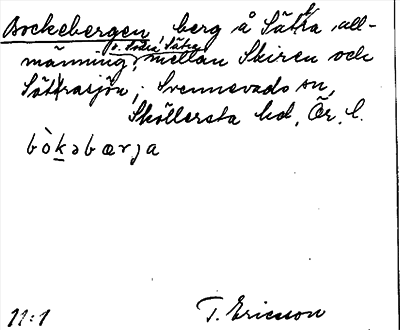 Bockebergen, berg å Sätra all-
o. Södra Sätra
männing, mellan Skiren och
Sättrasjön, Svennevads sn,
Sköllersta hd, Ör. l.
bò̀kəbærja
11:1 T. Ericsson